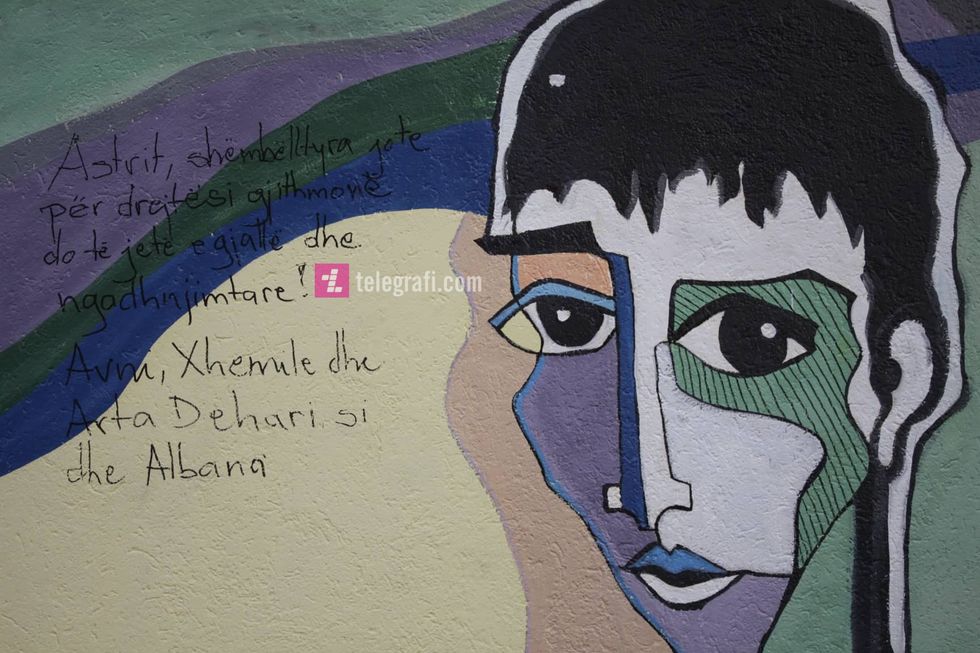 Astrit, shëmbëlltyra jote
për drejtësi gjithmonë
do të jetë e gjatë dhe
ngadhnjimtare!
telegrafi.com
Avni, Xhemile dhe
Arta Dehari si
dhe Albana